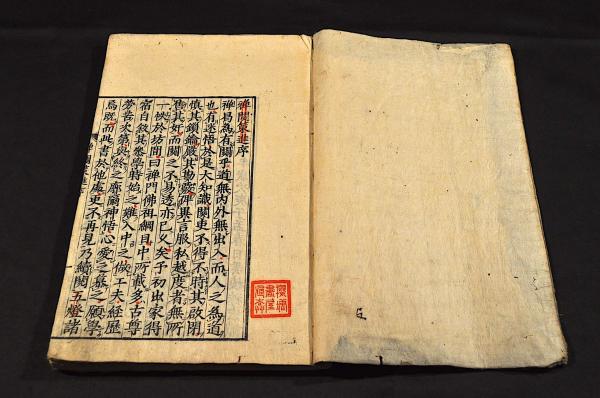 禪關策進序
禪曷為有關乎道無內外無出入而人之為道
也有迷悟於是大知識關吏不得不時其啟閉
慎其鎖鑰嚴其勘覈俾異言服私越度者無所
售其奸而關之不易透亦已久矣予初出家得
一帙於坊間曰禪門佛祖綱目中所載多古尊
宿自敘其參學時始之難入中之做工夫經歷
勞苦次第與終之廓爾神悟心愛之慕之願學
焉既而此書於他處更不再見乃續閱五燈諸